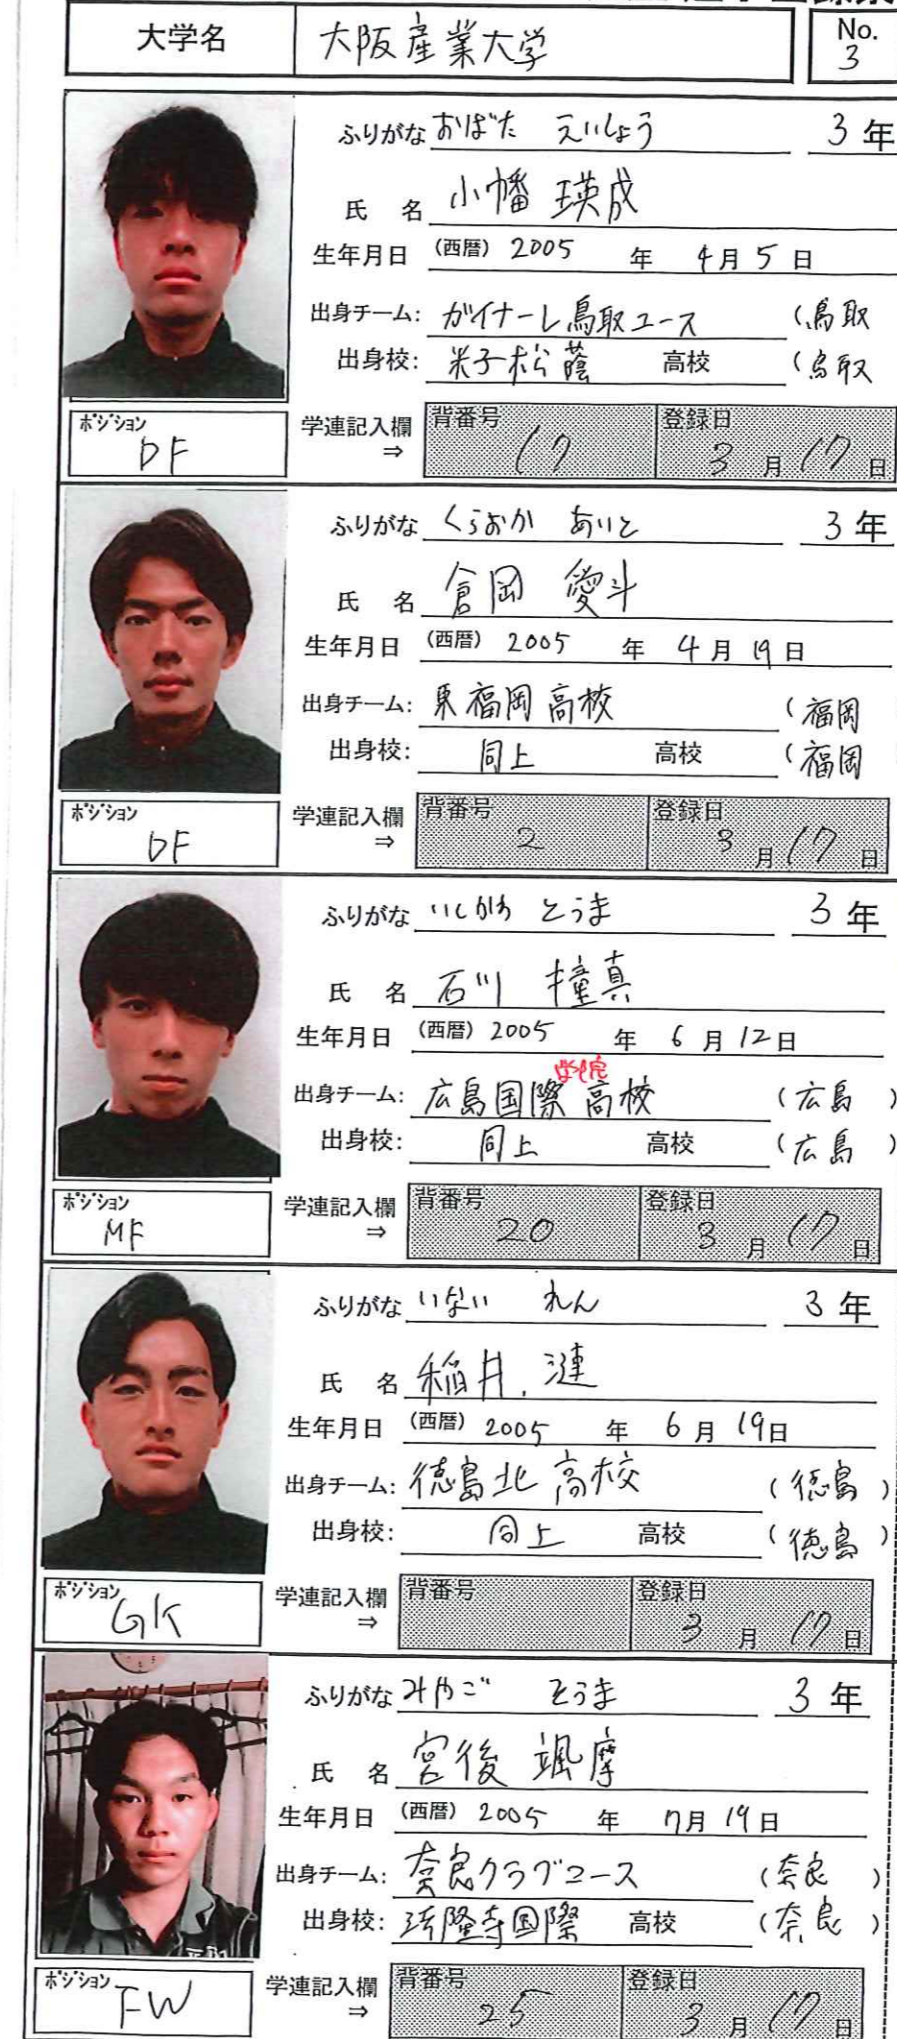 大学名 大阪産業大学 No. 3
ふりがな おばた えいしょう 3年
氏 名 小幡 瑛成
生年月日 (西暦) 2005 年 4月 5 日
出身チーム: ガイナーレ鳥取ユース (鳥取
出身校: 米子松蔭 高校 (鳥取
ポジション DF 学連記入欄 ⇒ 背番号 17 登録日 3 月 17 日
ふりがな くらおか あいと 3年
氏 名 倉岡 愛斗
生年月日 (西暦) 2005 年 4月 19日
出身チーム: 東福岡高校 (福岡
出身校: 同上 高校 (福岡
ポジション DF 学連記入欄 ⇒ 背番号 2 登録日 3 月 17 日
ふりがな いしかわ とうま 3年
氏 名 石川 橦真
生年月日 (西暦) 2005 年 6月 12日
学院
出身チーム: 広島国際高校 (広島 )
出身校: 同上 高校 (広島 )
ポジション MF 学連記入欄 ⇒ 背番号 20 登録日 3 月 17 日
ふりがな いない れん 3年
氏 名 稲井 漣
生年月日 (西暦) 2005 年 6月 19日
出身チーム: 徳島北高校 (徳島 )
出身校: 同上 高校 (徳島 )
ポジション GK 学連記入欄 ⇒ 背番号 登録日 3 月 17 日
ふりがな みやご そうま 3年
氏 名 宮後 颯摩
生年月日 (西暦) 2005 年 7月 19日
出身チーム: 奈良クラブユース (奈良 )
出身校: 法隆寺国際 高校 (奈良 )
ポジション FW 学連記入欄 ⇒ 背番号 25 登録日 3 月 17 日